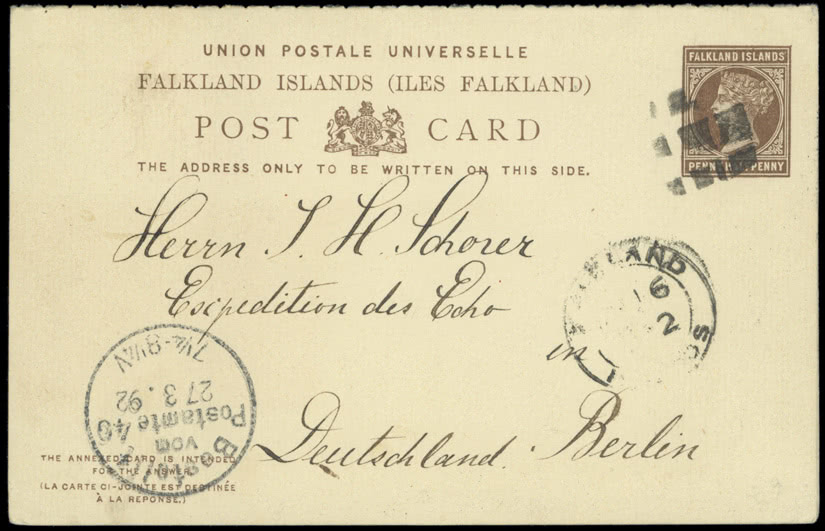 UNION POSTALE UNIVERSELLE
FALKLAND ISLANDS (ILES FALKLAND)
POST CARD
THE ADDRESS ONLY TO BE WRITTEN ON THIS SIDE.
FALKLAND ISLANDS
PENNY PENNY
Herrn J. H. Schorer
Expedition des Echo
in
Deutschland. Berlin
FALKLAND IS
6
2
Bestellt
vom
Postamte 40
27 3. 92
7½-8½N
THE ANNEXED CARD IS INTENDED
FOR THE ANSWER
(LA CARTE CI-JOINTE EST DESTINÉE
À LA RÉPONSE.)